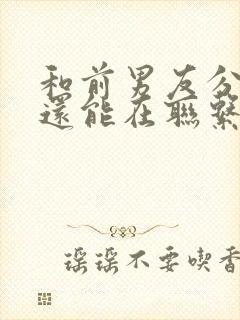 和前男友分
還能在聯繫
瑶瑶不要喫香